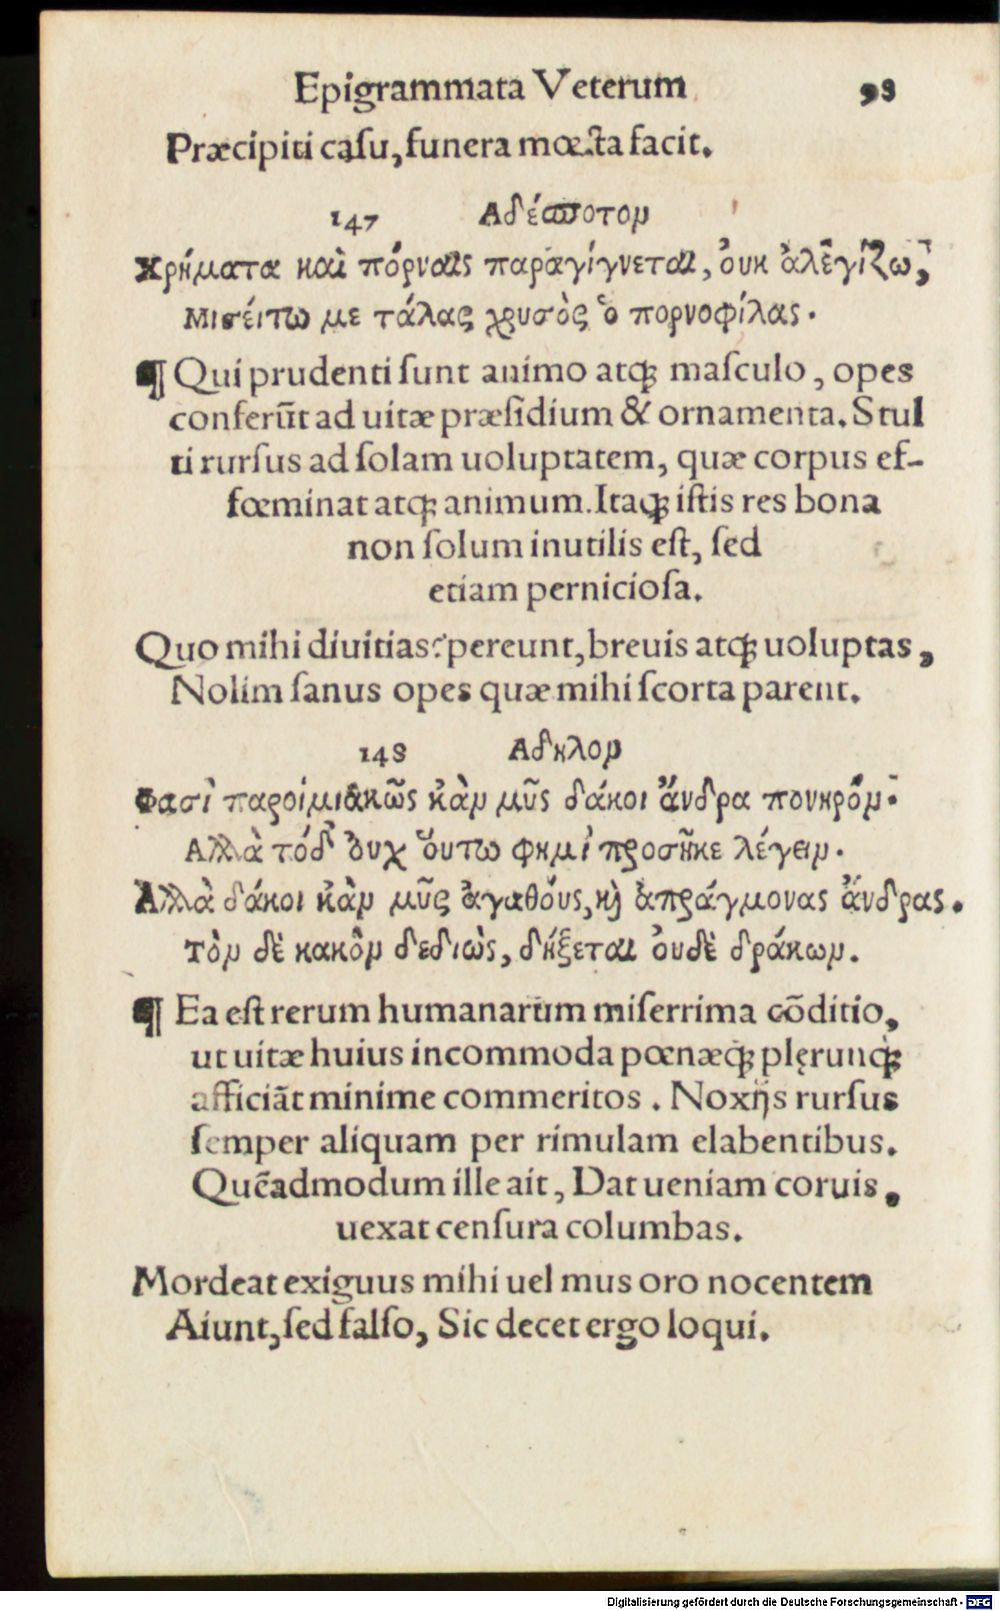 Epigrammata Veterum 98
Præcipiti caſu, funera mœſta facit.
147 Αδέσποτομ
Χρήματα καὶ πόρναις παραγίγνεται, ὀυκ ἀλεγίζω,
Μισέιτω με τάλας χρυσὸς ὁ πορνοφίλας.
¶ Qui prudenti ſunt animo atq; maſculo, opes
conferūt ad uitæ præſidium & ornamenta. Stul
ti rurſus ad ſolam uoluptatem, quæ corpus ef-
fœminat atq; animum. Itaq; iſtis res bona
non ſolum inutilis eſt, ſed
etiam pernicioſa.
Quo mihi diuitias? pereunt, breuis atq; uoluptas,
Nolim ſanus opes quæ mihi ſcorta parent.
148 Αδηλομ
Φασὶ παροιμιακῶς κἀμ μῦς δάκοι ἄνδρα πονηρόμ·
Αλλὰ τόδ' ὀυχ ὅυτω φημὶ προσῆκε λέγειμ.
Αλλὰ δάκοι κἀμ μῦς ἀγαθόυς, κὶ ἀπράγμονας ἄνδρας.
Τὸμ δὲ κακὸμ δεδιὼς, δήξεται ὀυδὲ δράκωμ.
¶ Ea eſt rerum humanarum miſerrima cōditio,
ut uitæ huius incommoda pœnæq; plęrunq;
afficiāt minime commeritos. Noxijs rurſus
ſemper aliquam per rimulam elabentibus.
Quēadmodum ille ait, Dat ueniam coruis,
uexat cenſura columbas.
Mordeat exiguus mihi uel mus oro nocentem
Aiunt, ſed falſo, Sic decet ergo loqui.
Digitalisierung gefördert durch die Deutsche Forschungsgemeinschaft - DFG